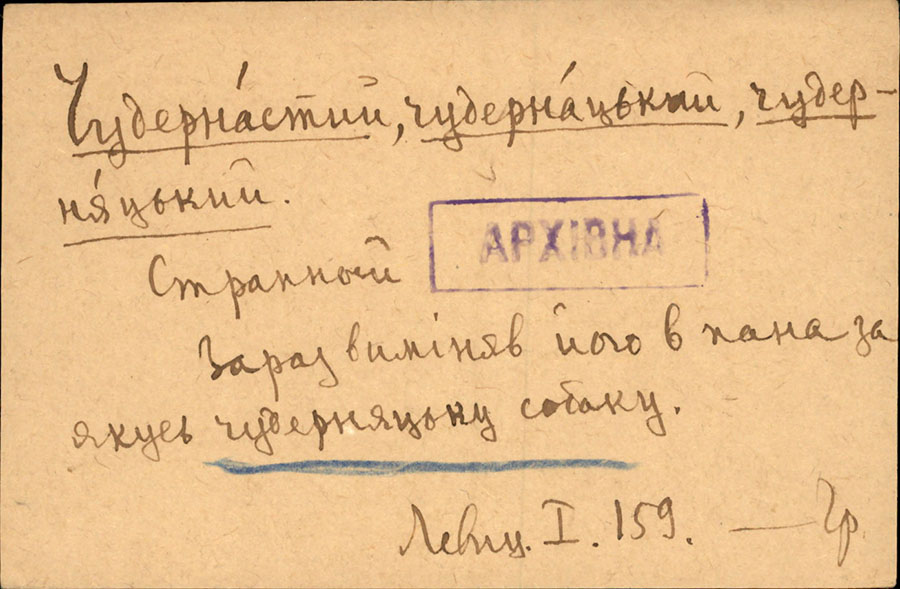 Чудерна́стий, чудерна́цький, чудер-
ня́цький.
АРХІВНА
Странный
Зараз виміняв його в пана за
якусь чудерняцьку собаку.
Левиц. I. 159. — Гр.